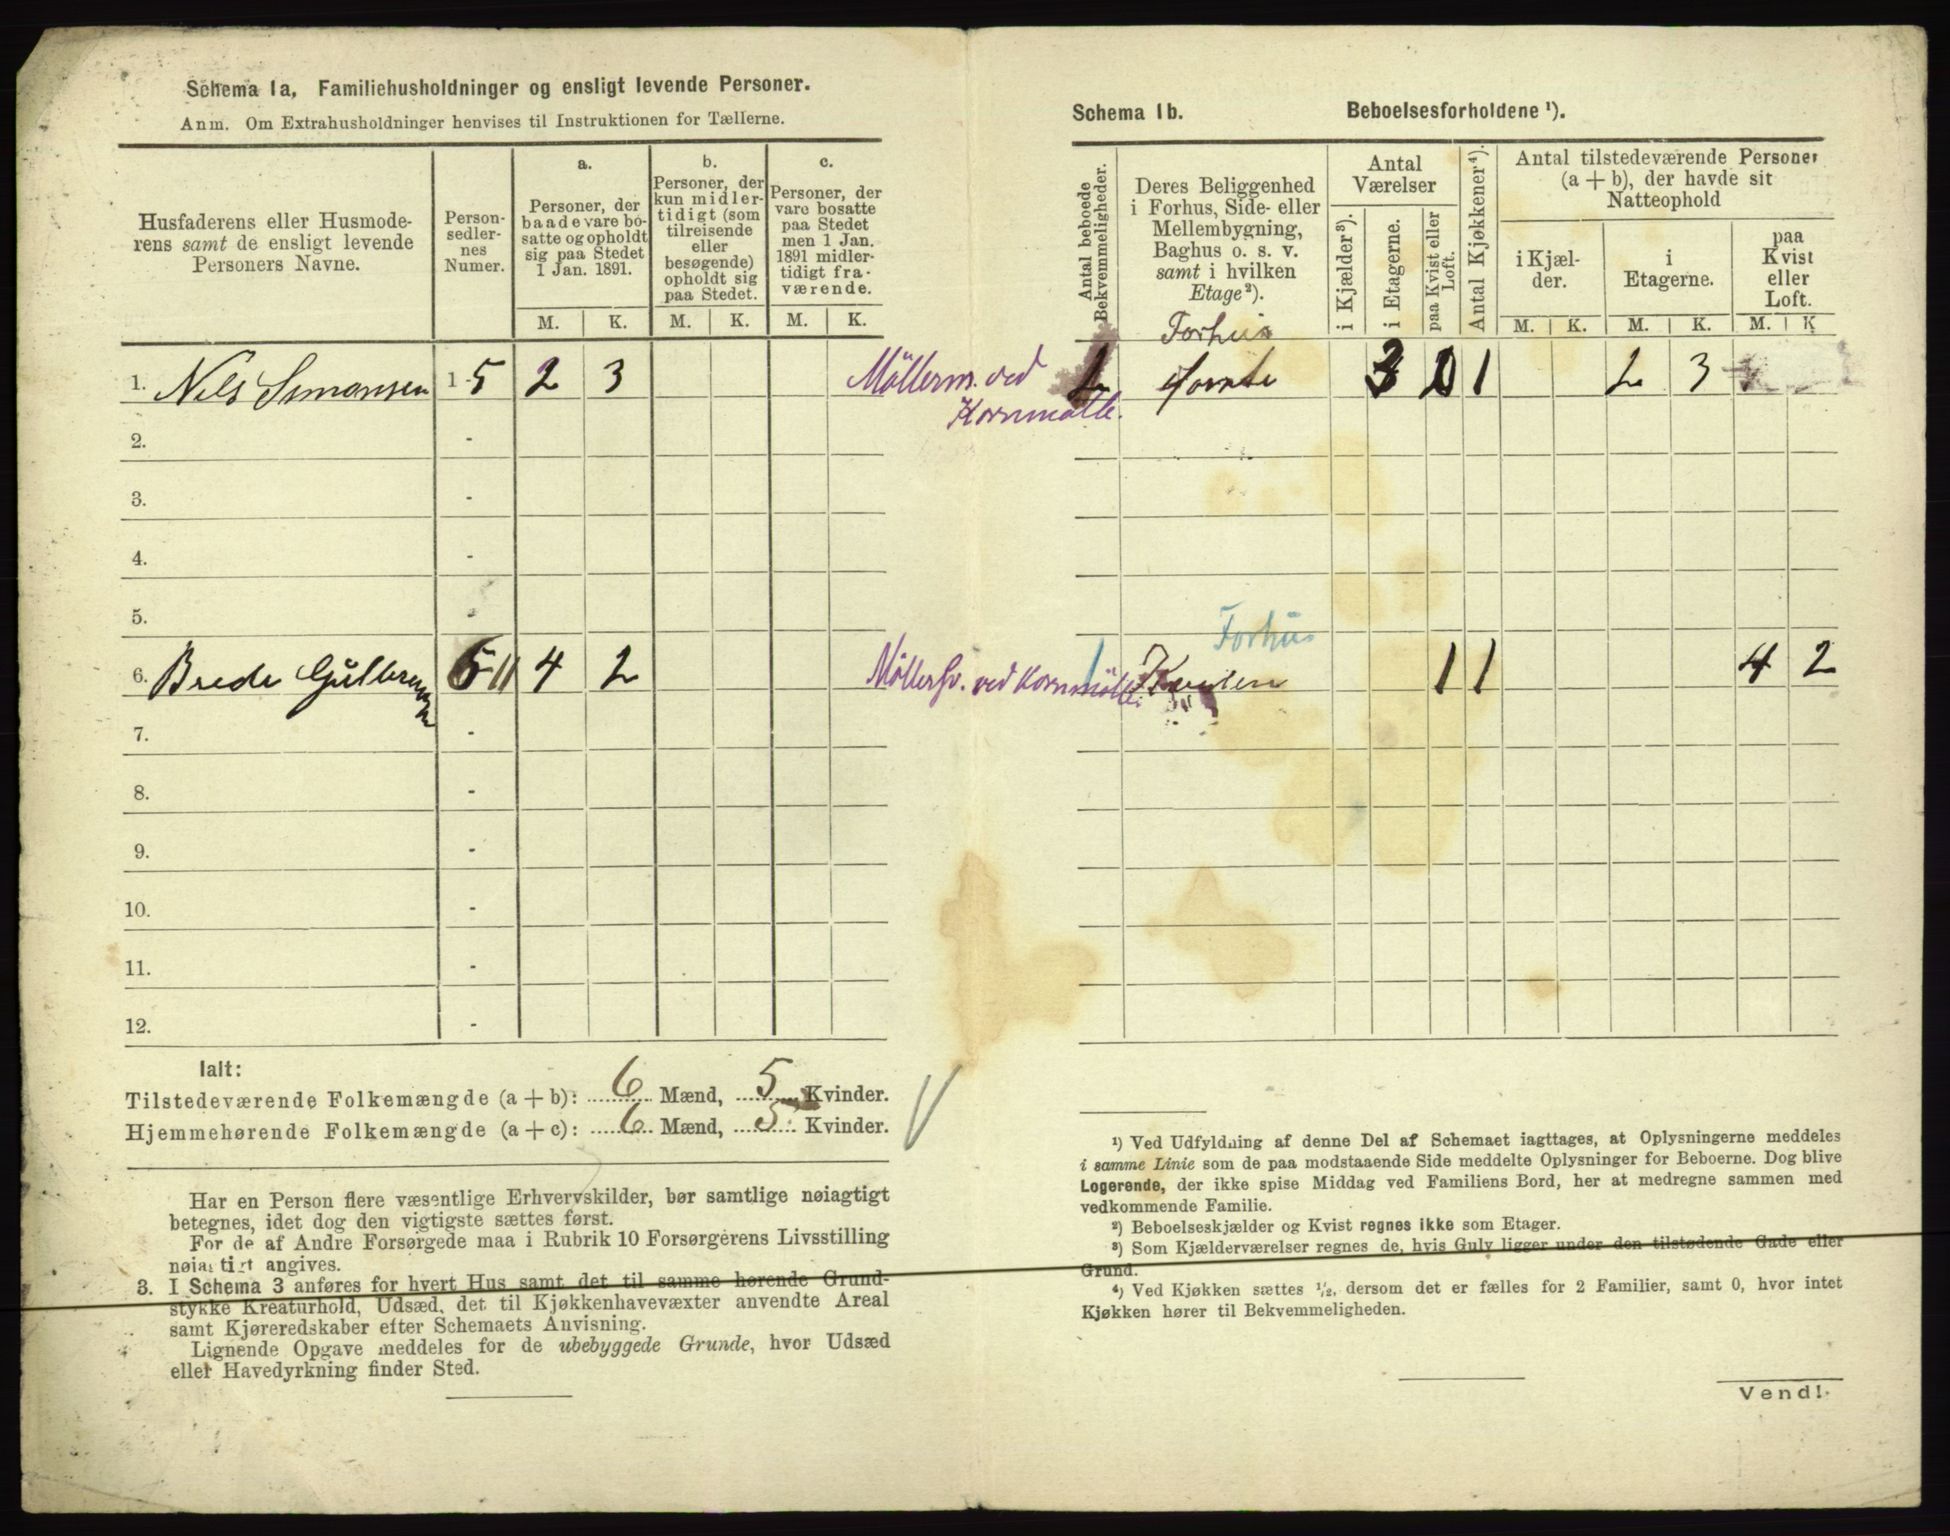 Schema 1a, Familiehusholdninger og ensligt levende Personer.
Anm. Om Extrahusholdninger henvises til Instruktionen for Tællerne.
Husfaderens eller Husmode-
rens samt de ensligt levende
Personers Navne.
Person-
sedler-
nes
Numer.
a.
Personer, der
baade vare bo-
satte og opholdt
sig paa Stedet
1 Jan. 1891.
b.
Personer, der
kun midler-
tidigt (som
tilreisende
eller
besøgende)
opholdt sig
paa Stedet.
c.
Personer, der
vare bosatte
paa Stedet
men 1 Jan.
1891 midler-
tidigt fra-
værende.
M. K. M. K. M. K.
1. Nils Simonsen 1-5 2 3
2. -
3. -
4. -
5. -
6. Brede Gulbrensen 6-11 4 2
7. -
8. -
9. -
10. -
11. -
12. -
Ialt:
Tilstedeværende Folkemængde (a + b): 6 Mænd, 5 Kvinder.
Hjemmehørende Folkemængde (a + c): 6 Mænd, 5 Kvinder.
Har en Person flere væsentlige Erhvervskilder, bør samtlige nøiagtigt
betegnes, idet dog den vigtigste sættes først.
For de af Andre Forsørgede maa i Rubrik 10 Forsørgerens Livsstilling
nøiagtigt angives.
3. I Schema 3 anføres for hvert Hus samt det til samme hørende Grund-
stykke Kreaturhold, Udsæd, det til Kjøkkenhavevæxter anvendte Areal
samt Kjøreredskaber efter Schemaets Anvisning.
Lignende Opgave meddeles for de ubebyggede Grunde, hvor Udsæd
eller Havedyrkning finder Sted.
Schema 1b. Beboelsesforholdene ¹).
Antal beboede
Bekvemmeligheder.
Deres Beliggenhed
i Forhus, Side- eller
Mellembygning,
Baghus o. s. v.
samt i hvilken
Etage²).
Antal
Værelser
i Kjælder³).
i Etagerne.
paa Kvist eller
Loft.
Antal Kjøkkener⁴).
Antal tilstedeværende Personer
(a + b), der havde sit
Natteophold
i Kjæl-
der.
i
Etagerne.
paa
Kvist
eller
Loft.
M. K. M. K. M. K
Forhus
Möllerm. ved 1 3 1 1 2 3
Kornmölle.
Forhus
Möllersv. ved Kornmölle. 1 Kvisten 1 1 4 2
¹) Ved Udfyldning af denne Del af Schemaet iagttages, at Oplysningerne meddeles
i samme Linie som de paa modstaaende Side meddelte Oplysninger for Beboerne. Dog blive
Logerende, der ikke spise Middag ved Familiens Bord, her at medregne sammen med
vedkommende Familie.
²) Beboelseskjælder og Kvist regnes ikke som Etager.
³) Som Kjælderværelser regnes de, hvis Gulv ligger under den tilstødende Gade eller
Grund.
⁴) Ved Kjøkken sættes ¹/₂, dersom det er fælles for 2 Familier, samt 0, hvor intet
Kjøkken hører til Bekvemmeligheden.
Vend!